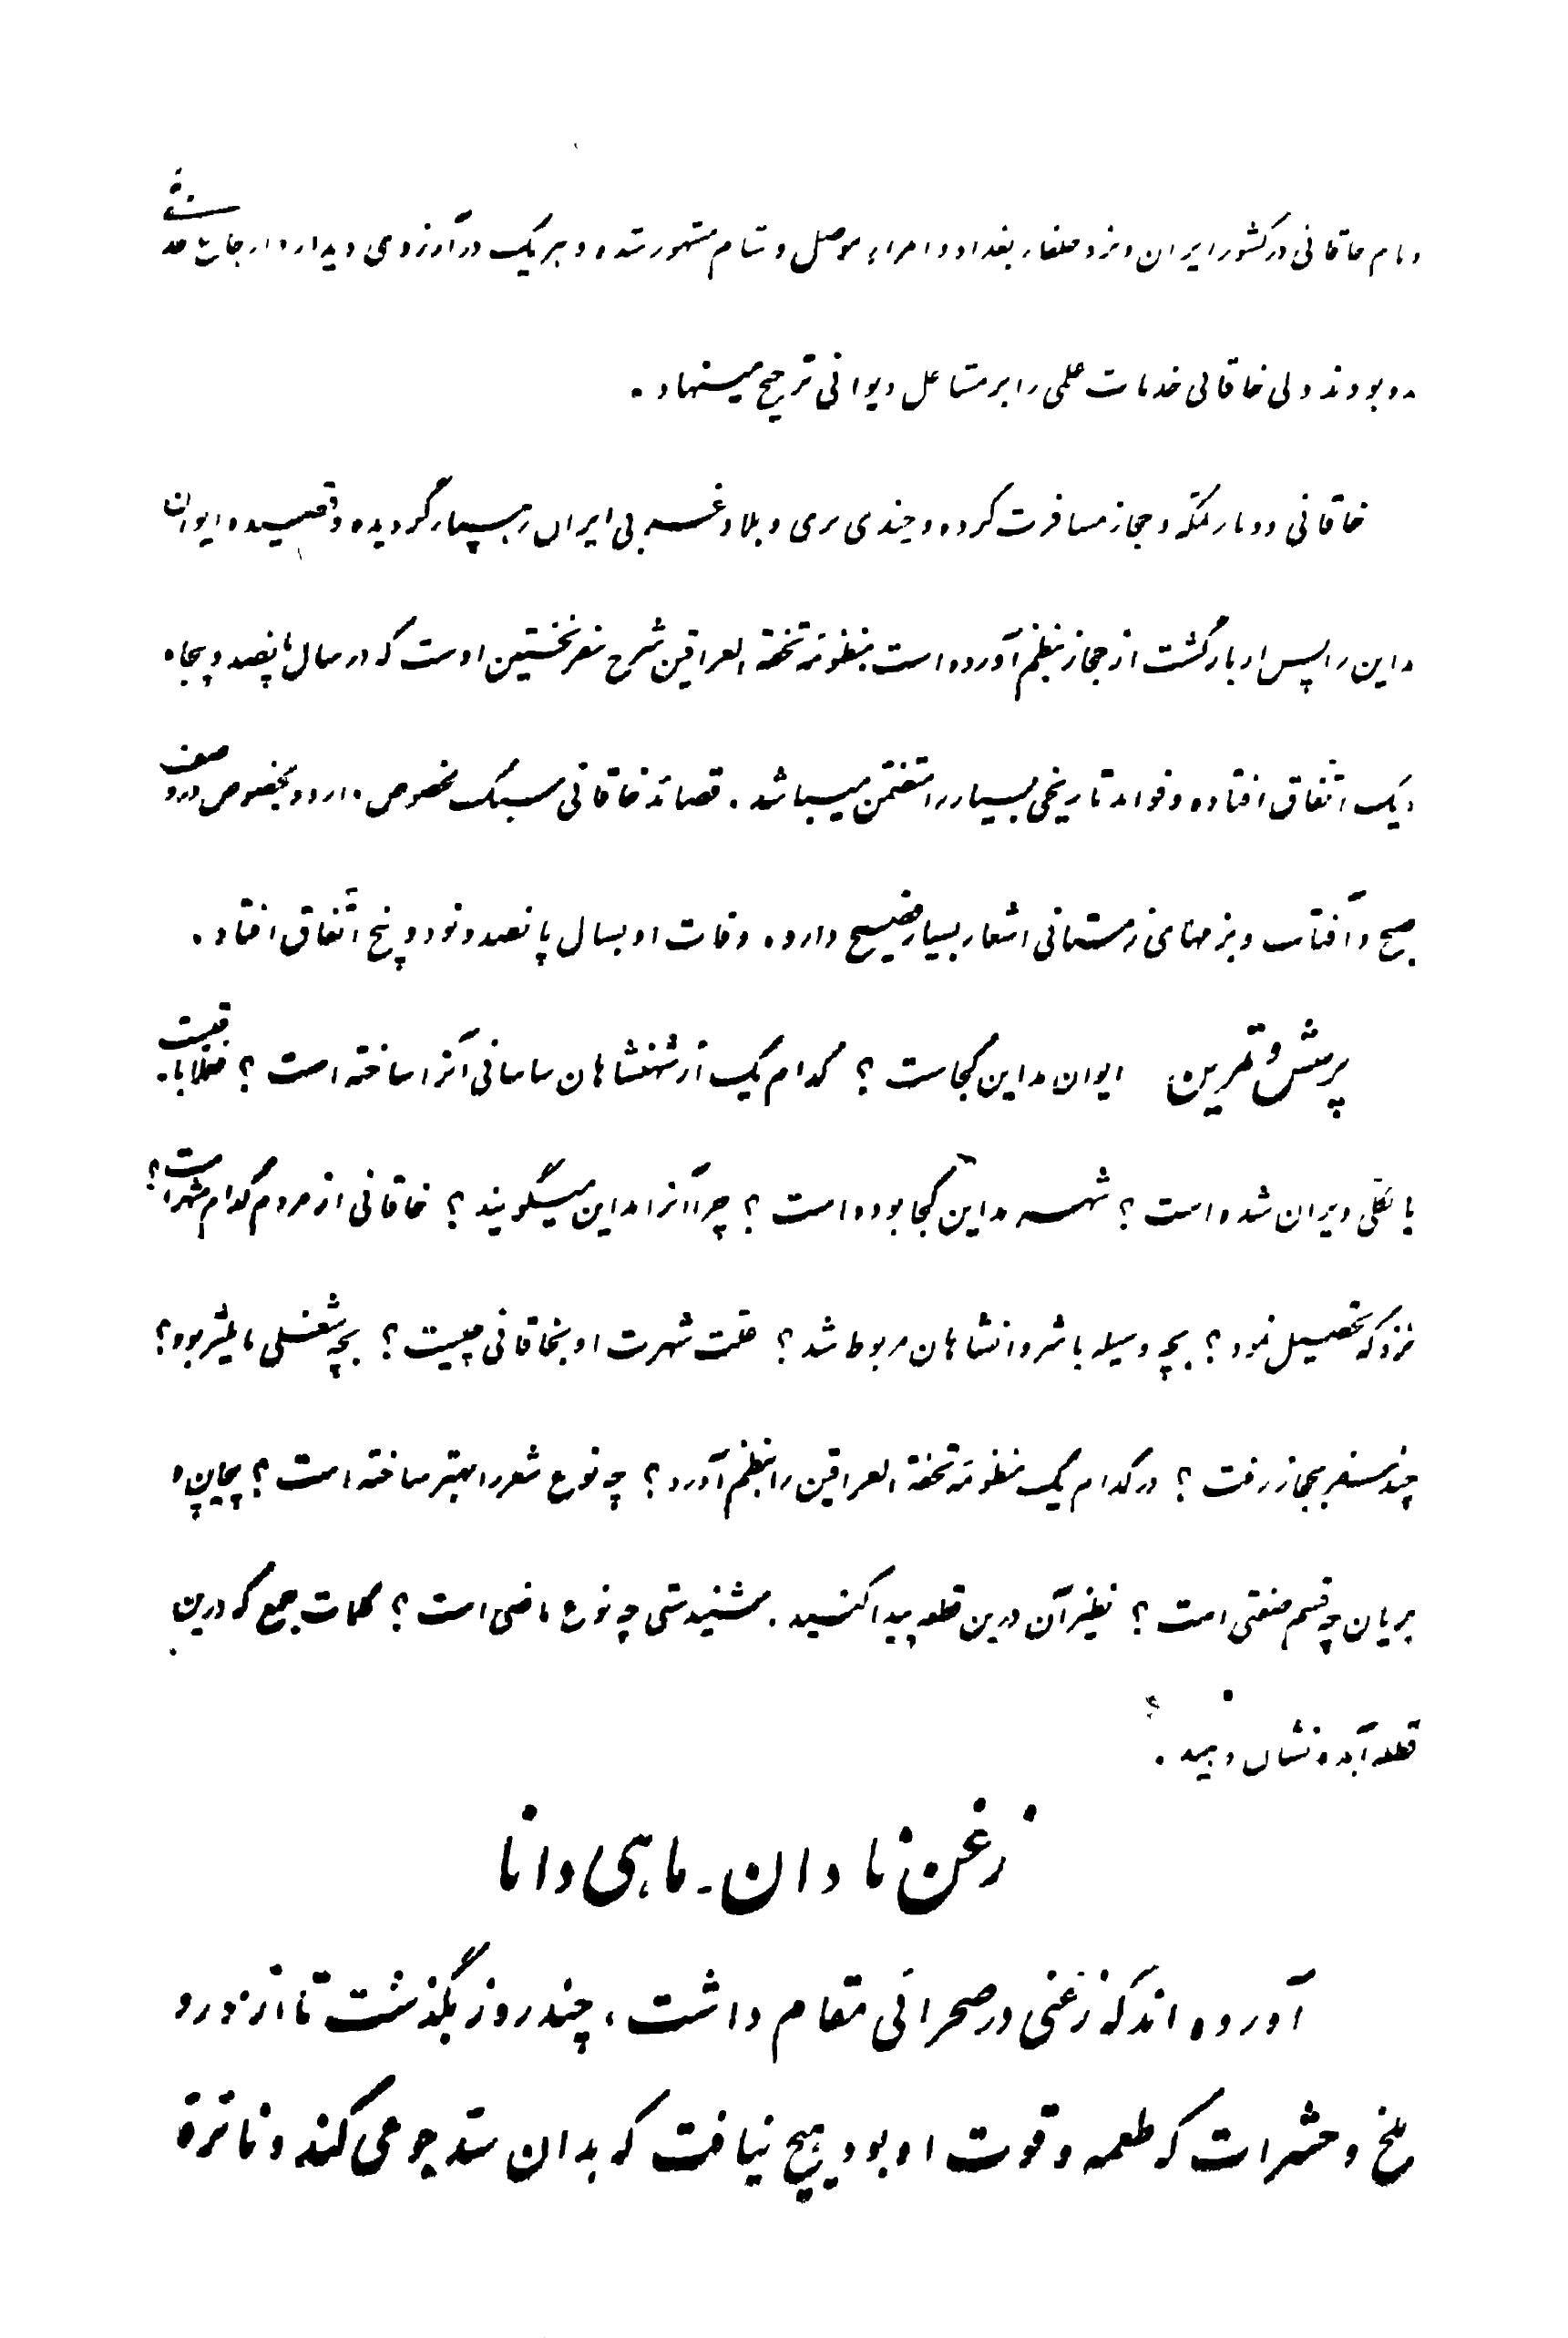 و نام خاقانی در کشور ایران و نزد خلفاء بغداد و امراء موصل و شام مشهور شده و هر یک در آرزوی دیدار و ارجاع خدمتی
بدو بودند ولی خاقانی خدمات علمی را بر مشاغل دیوانی ترجیح مینهاد.
خاقانی دو بار بمکّه و حجاز مسافرت کرده و چندی بری و بلاد غربی ایران رهسپار گردیده و قصیده ایوان
مداین را پس از بازگشت از حجاز بنظم آورده است منظومهٔ تحفة العراقین شرح سفر نخستین اوست که در سال پانصد و پنجاه
و یک اتّفاق افتاده و فوائد تاریخی بسیار را متضمّن میباشد. قصائد خاقانی سبک مخصوص دارد و بخصوص در وصف
صبح و آفتاب و بزمهای زمستانی اشعار بسیار فصیح دارد. وفات او بسال پانصد و نود و پنج اتّفاق افتاد.
پرسش و تمرین ایوان مداین کجاست ؟ کدام یک از شهنشاهان ساسانی آنرا ساخته است ؟ فعلا باقیست
یا بکلّی ویران شده است ؟ شهر مداین کجا بوده است ؟ چرا آنرا مداین میگویند ؟ خاقانی از مردم کدام شهر است ؟
نزد که تحصیل نمود ؟ بچه وسیله با شروانشاهان مربوط شد ؟ علّت شهرت او بخاقانی چیست ؟ بچه شغلی مایلتر بود ؟
چند سفر بحجاز رفت ؟ در کدام یک منظومهٔ تحفة العراقین را بنظم آورد ؟ چه نوع شعر را بهتر ساخته است ؟ پیچان و
بریان چه قسم صفتی است ؟ نظیر آن درین قطعه پیدا کنید. مشنیدستی چه نوع ماضی است ؟ کلمات جمع که درین
قطعه آمده نشان دهید.
زغن نادان - ماهی دانا
آورده اند که زغنی در صحرائی مقام داشت، چند روز بگذشت تا از نوردرو
ملخ و حشرات که طعمه و قوت او بود هیچ نیافت که بدان سدّ جوعی کند و نائرهٔ